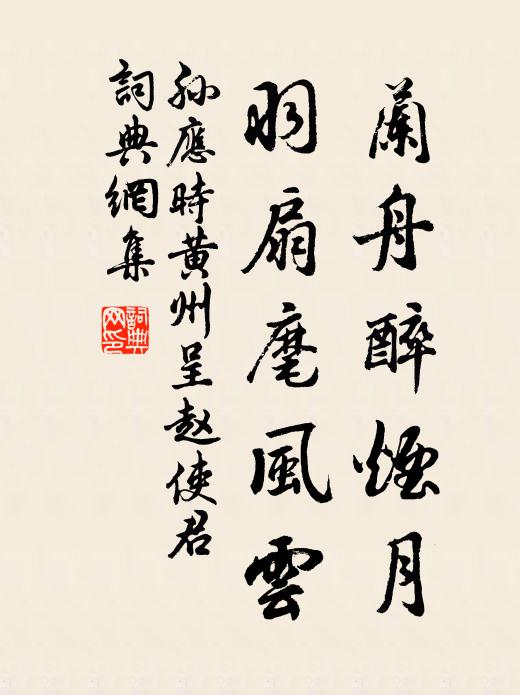 蘭舟醉煙月
羽扇麾風雲
孙應時黄州呈赵使君
詞典網集
詞典网印